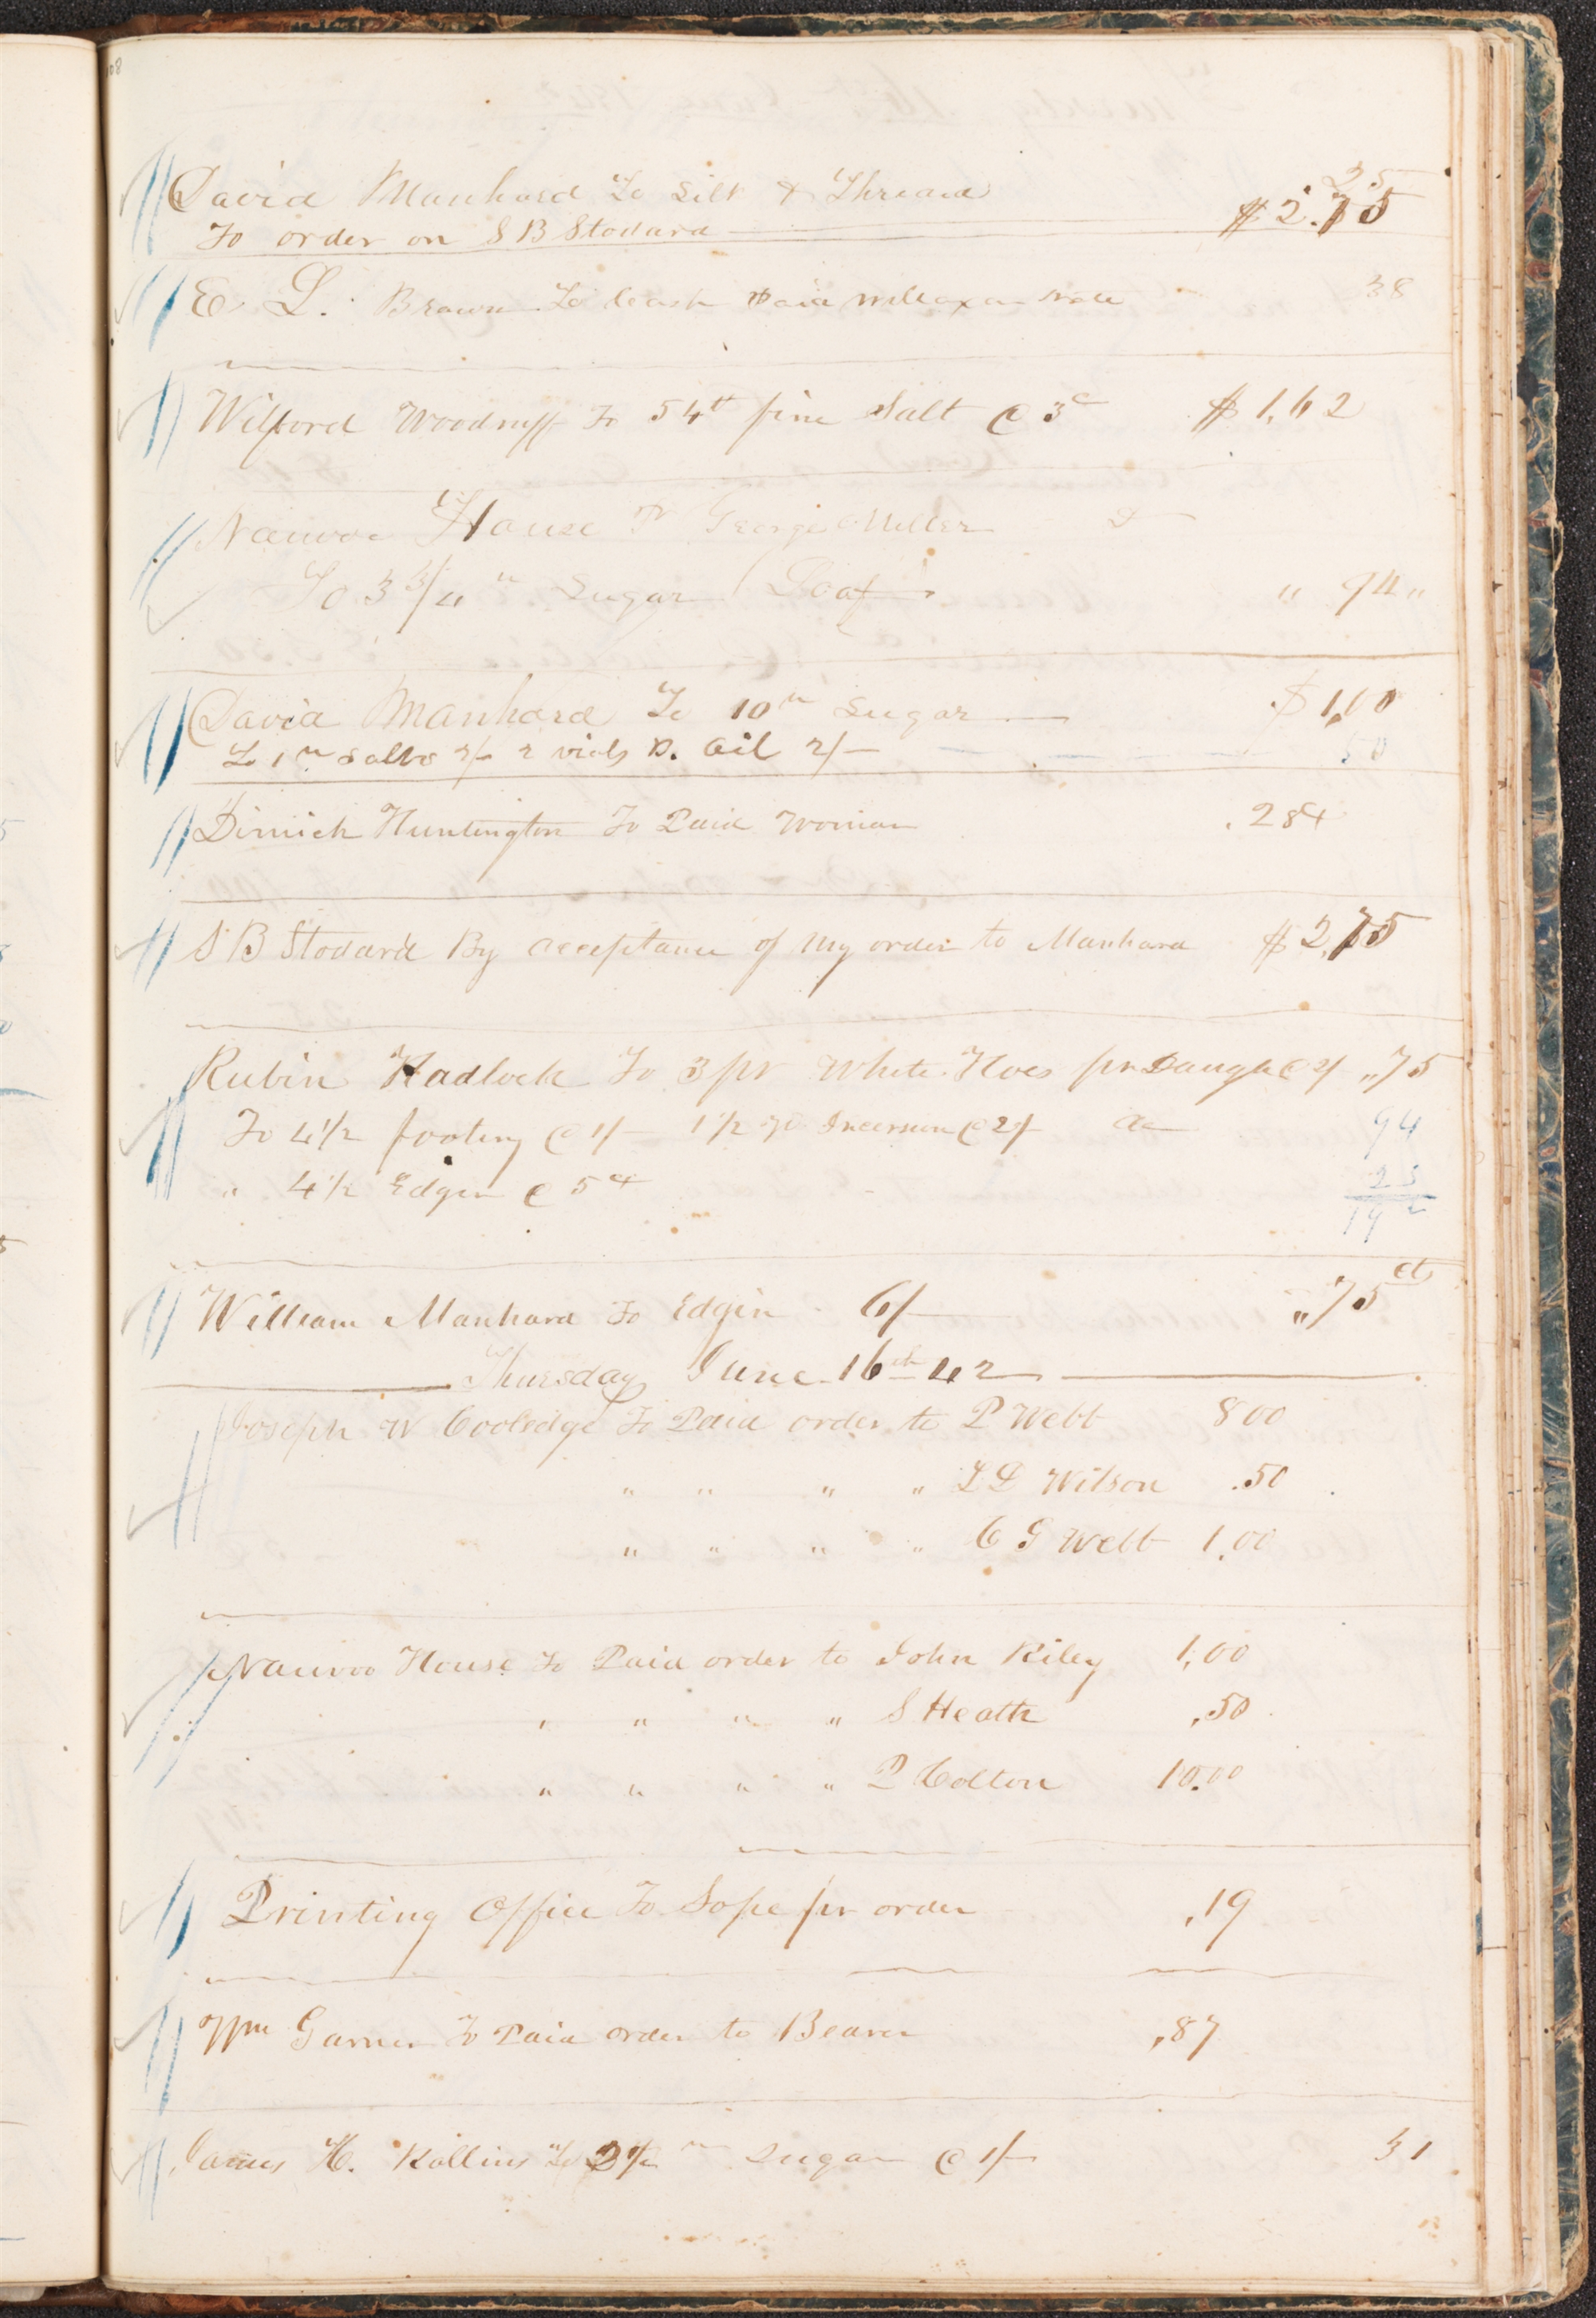 108
David Manhard To Silk & Thread 25
To order on S B Stodard $2.75
E. L. Brown To Cash Paid Willcox on Note 38
Wilford Woodruff To 54 lb fine Salt @ 3c $1,62
Nauvoo House Pr George Miller Dr
To 3 3/4 lb Sugar Loaf " 94 "
David Manhard To 10 lb Sugar $1,00
To 1 lb Salts 2/ 2 vials B. Oil 2/ 50
Dimick Huntington To Paid Woman .284
S B Stodard By acceptance of my order to Manhard $2,75
Rubin Hadlock To 3 pr White Hoes pr Daugh @ 2/ "75
To 4 1/2 footing @ 1/ 1 1/2 yd Incersion @ 2/ 94
" 4 1/2 Edgin @ 5 23
19 2
William Manhard To Edgin 6/ "75 cts
Thursday June 16th 42
Joseph W Coolidge To Paid order to P Webb 800
" " " " L D Wilson .50
" " " " C G Webb 1.00
Nauvoo House To Paid order to John Riley 1,00
" " " " S Heath ,50
" " " " P Colton 10.00
Printing Office To Sope pr order ,19
Wm Garner To Paid order to Bearer ,87
James H. Rollins To 2 1/2 lb Sugar @ 1/ 31